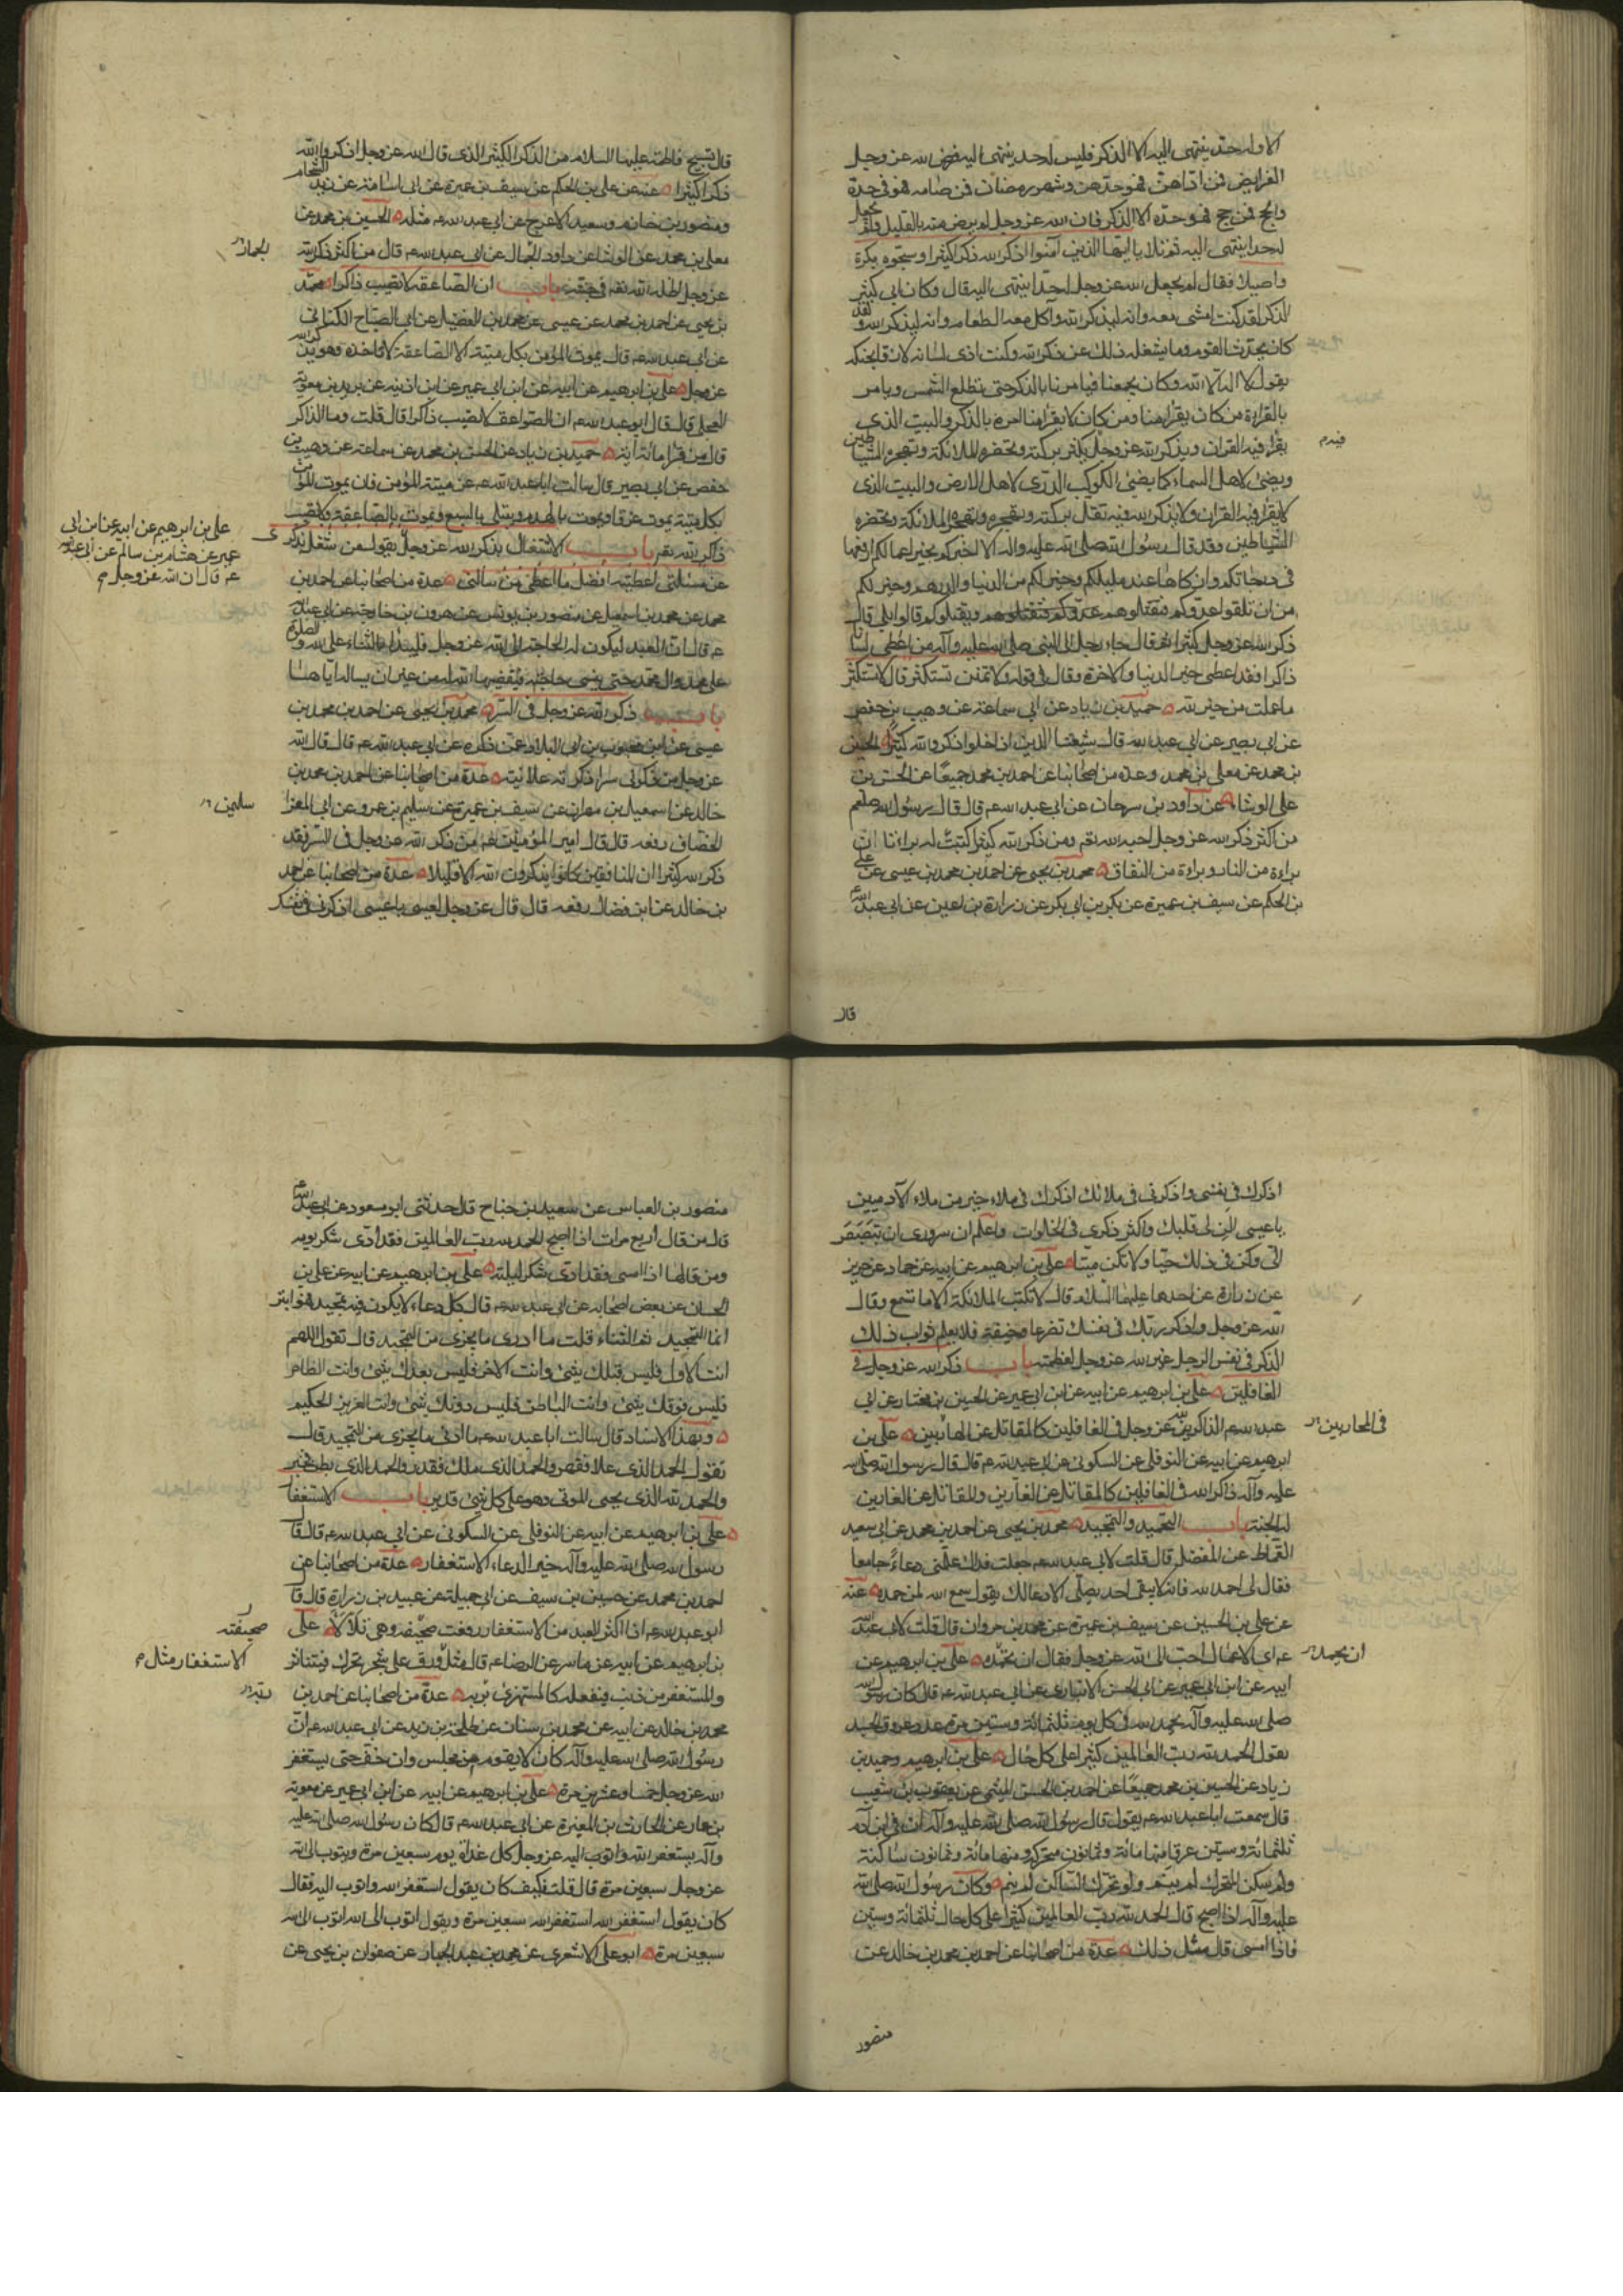 الا وله حد ينتهى اليه الا الذكر فليس له حد ينتهى اليه فرض الله عز وجل
الفرايض فمن اداهن فهو حدهن وشهر رمضان فمن صامه فهو حده
والحج فمن حج فهو حده الا الذكر فان الله عز وجل لم يرض منه بالقليل ولم يجعل
له حدا ينتهى اليه ثم تلا يا ايها الذين آمنوا اذكروا الله ذكرا كثيرا وسبحوه بكرة
واصيلا فقال لم يجعل الله عز وجل له حدا ينتهى اليه قال وكان ابى كثير
الذكر لقد كنت امشى معه وانه ليذكر الله وآكل معه الطعام وانه ليذكر الله ولقد
كان يحدث القوم وما يشغله ذلك عن ذكر الله وكنت ارى لسانه لازقا بحنكه
يقول لا اله الا الله وكان يجمعنا فيامرنا بالذكر حتى تطلع الشمس ويامر
بالقراءة من كان يقرا منا ومن كان لا يقرا منا امره بالذكر والبيت الذى
يقرا فيه القران ويذكر الله عز وجل يكثر بركته وتحضره الملائكة وتهجره الشياطين
فيه م
ويضئ لاهل السماء كما يضئ الكوكب الدرى لاهل الارض والبيت الذى
لا يقرا فيه القران ولا يذكر الله فيه تقل بركته وتهجره الملائكة وتحضره
الشياطين وقد قال رسول الله صلى الله عليه واله الا اخبركم بخير اعمالكم ارفعها
فى درجاتكم وازكاها عند مليككم وخير لكم من الدنيا والدرهم وخير لكم
من ان تلقوا عدوكم فتقتلوهم ويقتلوكم قالوا بلى قال
ذكر الله عز وجل كثيرا ثم قال جاء رجل الى النبى صلى الله عليه وآله من اعطى لسانا
ذاكرا فقد اعطى خير الدنيا والاخرة وقال فى قوله ولا تمنن تستكثر قال لا تستكثر
ما عملت من خير لله حميد بن زياد عن ابى سماعة عن وهيب بن حفص
عن ابى بصير عن ابى عبد الله قال شيعتنا الذين اذا خلوا ذكروا الله كثيرا الحسين
بن محمد عن معلى بن محمد وعدة من اصحابنا عن احمد بن محمد جميعا عن الحسن بن
على الوشاء عن داود بن سرحان عن ابى عبد الله ع قال قال رسول الله صلعم
من اكثر ذكر الله عز وجل احبه الله تع ومن ذكر الله كثيرا كتبت له براءتان
براءة من النار وبراءة من النفاق محمد بن يحيى عن احمد بن محمد بن عيسى عن على
بن الحكم عن سيف بن عميرة عن بكر بن ابى بكر عن زرارة بن اعين عن ابى عبد الله
قال
قال تسبيح فاطمة عليها السلام من الذكر الكثير الذى قال الله عز وجل اذكروا الله
ذكرا كثيرا عنه عن على بن الحكم عن سيف بن عميرة عن ابى اسامة عن زيد الشحام
ومنصور بن حازم وسعيد الاعرج عن ابى عبد الله ع مثله الحسين بن محمد عن
معلى بن محمد عن الوشا عن داود الجمال عن ابى عبد الله ع قال من اكثر ذكر الله
عز وجل اظله الله تع فى جنته باب ان الصاعقة لا تصيب ذاكرا محمد
بن يحيى عن احمد بن محمد عن عيسى عن محمد بن الفضيل عن ابى الصباح الكنانى
عن ابى عبد الله ع قال يموت المؤمن بكل ميتة الا الصاعقة لا تاخذه وهو يذكر الله
عز وجل على بن ابرهيم عن ابيه عن ابن ابى عمير عن ابن اذينه عن بريد بن معوية
العجلى قال قال ابو عبد الله ع ان الصواعق لا تصيب ذاكرا قال قلت وما الذاكر
قال من قرا مائة آية حميد بن زياد عن الحسن بن محمد عن سماعة عن وهيب بن
حفص عن ابى بصير قال سالت ابا عبد الله ع عن ميتة المؤمن قال يموت المؤمن
بكل ميتة يموت غرقا ويموت بالهدم ويبتلى بالسبع ويموت بالصاعقة ولا تصيب
ذاكر الله تع باب الاشتغال بذكر الله عز وجل يقول من شغل بذكرى
على بن ابرهيم عن ابيه عن ابن ابى
عمير عن هشام بن سالم عن ابى عبد الله
ع قال ان الله عز وجل م
عن مسئلتى اعطيته افضل ما اعطى من سالنى عدة من اصحابنا عن احمد بن
محمد عن محمد بن اسمعيل عن منصور بن يونس عن هرون بن خارجة عن ابى عبد الله
ع قال ان العبد ليكون له الحاجة الى الله عز وجل فيبدا بالثناء على الله والصلوة
على محمد وال محمد حتى ينسى حاجته فيقضيها الله له من غير ان يساله اياها
باب ذكر الله عز وجل فى السر محمد بن يحيى عن احمد بن محمد بن
عيسى عن ابن محبوب عن ابى البلاد عمن ذكره عن ابى عبد الله ع قال قال الله
عز وجل من ذكرنى سرا ذكرته علانية عدة من اصحابنا عن احمد بن محمد بن
خالد عن اسمعيل بن مهران عن سيف بن عميرة عن سليم بن عمرو عن ابى المغرا
سليمن
الخصاف رفعه قال قال امير المؤمنين ع من ذكر الله عز وجل فى السر فقد
ذكر الله كثيرا ان المنافقين كانوا يذكرون الله الا قليلا عدة من اصحابنا عن احمد
بن خالد عن ابن فضال رفعه قال قال عز وجل لعيسى يا عيسى اذكرنى فى نفسك
اذكرك فى نفسى واذكرنى فى ملائك اذكرك فى ملاء خير من ملاء الآدميين
يا عيسى الن لى قلبك واكثر ذكرى فى الخلوات واعلم ان سرورى ان تبصبص
الى وكن فى ذلك حيا ولا تكن ميتا على بن ابرهيم عن ابيه عن حماد عن حريز
عن زرارة عن احدهما عليهما السلام قال لا تكتب الملائكة الا ما تسمع وقال
الله عز وجل واذكر ربك فى نفسك تضرعا وخيفة فلا يعلم ثواب ذلك
الذكر فى نفس الرجل غير الله عز وجل لعظمته باب ذكر الله عز وجل فى
الغافلين على بن ابرهيم عن ابيه عن ابن ابى عمير عن الحسين بن مختار عن ابى
عبد الله ع الذاكر لله عز وجل فى الغافلين كالمقاتل عن الهاربين على بن
فى المحاربين
ابرهيم عن ابيه عن النوفلى عن السكونى عن ابى عبد الله ع قال قال رسول الله صلى الله
عليه وآله ذاكر الله فى الغافلين كالمقاتل عن الفارين والمقاتل عن الفارين
له الجنة باب التحميد والتمجيد محمد بن يحيى عن احمد بن محمد عن ابى سعيد
القماط عن المفضل قال قلت لابى عبد الله ع جعلت فداك علمنى دعاء جامعا
فقال لى احمد الله فانه لا يبقى احد يصلى الا دعا لك يقول سمع الله لمن حمده عنه
عن على بن الحسين عن سيف بن عميرة عن محمد بن مروان قال قلت لابى عبد الله
ع اى الاعمال احب الى الله عز وجل فقال ان تحمده على بن ابرهيم عن
ان يحمد
ابيه عن ابن ابى عمير عن ابى الحسن الانبارى عن ابى عبد الله ع قال كان رسول الله
صلى الله عليه وآله يحمد الله فى كل يوم ثلثمائة وستين مرة عدد عروق الجسد
يقول الحمد لله رب العالمين كثيرا على كل حال على بن ابرهيم وحميد بن
زياد عن الحسين بن محمد جميعا عن احمد بن الحسن الميثمى عن يعقوب بن شعيب
قال سمعت ابا عبد الله ع يقول قال رسول الله صلى الله عليه وآله ان فى ابن آدم
ثلثمائة وستين عرقا منها مائة وثمانون متحركة ومنها مائة وثمانون ساكنة
ولو سكن المتحرك لم ينم ولو تحرك الساكن لم ينم وكان رسول الله صلى الله
عليه وآله اذا اصبح قال الحمد لله رب العالمين كثيرا على كل حال ثلثمائة وستين
فاذا امسى قال مثل ذلك عدة من اصحابنا عن احمد بن محمد بن خالد عن
منصور
منصور بن العباس عن سعيد بن جناح قال حدثنى ابو مسعود عن ابى عبد الله ع
قال من قال اربع مرات اذا اصبح الحمد لله رب العالمين فقد ادى شكر يومه
ومن قالها اذا امسى فقد ادى شكر ليلته على بن ابرهيم عن ابيه عن على بن
الحسان عن بعض اصحابه عن ابى عبد الله ع قال كل دعاء لا يكون فيه تمجيد فهو ابتر
انما التمجيد ثم الثناء قلت ما ادرى ما يجزى من التمجيد قال تقول اللهم
انت الاول فليس قبلك شئ وانت الاخر فليس بعدك شئ وانت الظاهر
فليس فوقك شئ وانت الباطن فليس دونك شئ وانت العزيز الحكيم
وبهذا الاسناد قال سالت ابا عبد الله ع ما ادنى ما يجزى من التمجيد قال
تقول الحمد لله الذى علا فقهر والحمد لله الذى ملك فقدر والحمد لله الذى بطن فخبر
والحمد لله الذى يحيى الموتى وهو على كل شئ قدير باب الاستغفار
على بن ابرهيم عن ابيه عن النوفلى عن السكونى عن ابى عبد الله ع قال قال
رسول الله صلى الله عليه وآله خير الدعاء الاستغفار عدة من اصحابنا عن
احمد بن محمد عن حسين بن سيف عن ابى جميلة عن عبيد بن زرارة قال قا
ابو عبد الله ع اذا اكثر العبد من الاستغفار رفعت صحيفه وهى تتلألأ على
صحيفته
بن ابرهيم عن ابيه عن ياسر عن الرضا ع قال مثل ورق على شجر تحرك فيتناثر
الاستغفار مثل م
والمستغفر من ذنب ويفعله كالمستهزئ بربه عدة من اصحابنا عن احمد بن
محمد بن خالد عن ابيه عن محمد بن سنان عن طلحة بن زيد عن ابى عبد الله ع ان
رسول الله صلى الله عليه وآله كان لا يقوم من مجلس وان خف حتى يستغفر
الله عز وجل خمسا وعشرين مرة على بن ابرهيم عن ابيه عن ابن ابى عمير عن معوية
بن عمار عن الحارث بن المغيرة عن ابى عبد الله ع قال كان رسول الله صلى الله عليه
وآله يستغفر الله واتوب اليه عز وجل كل غداة يوم سبعين مرة ويتوب الى الله
عز وجل سبعين مرة قال قلت فكيف كان يقول استغفر الله واتوب اليه فقال
كان يقول استغفر الله استغفر الله سبعين مرة ويقول اتوب الى الله اتوب الى الله
سبعين مرة ابو على الاشعرى عن محمد بن عبد الجبار عن صفوان بن يحيى عن